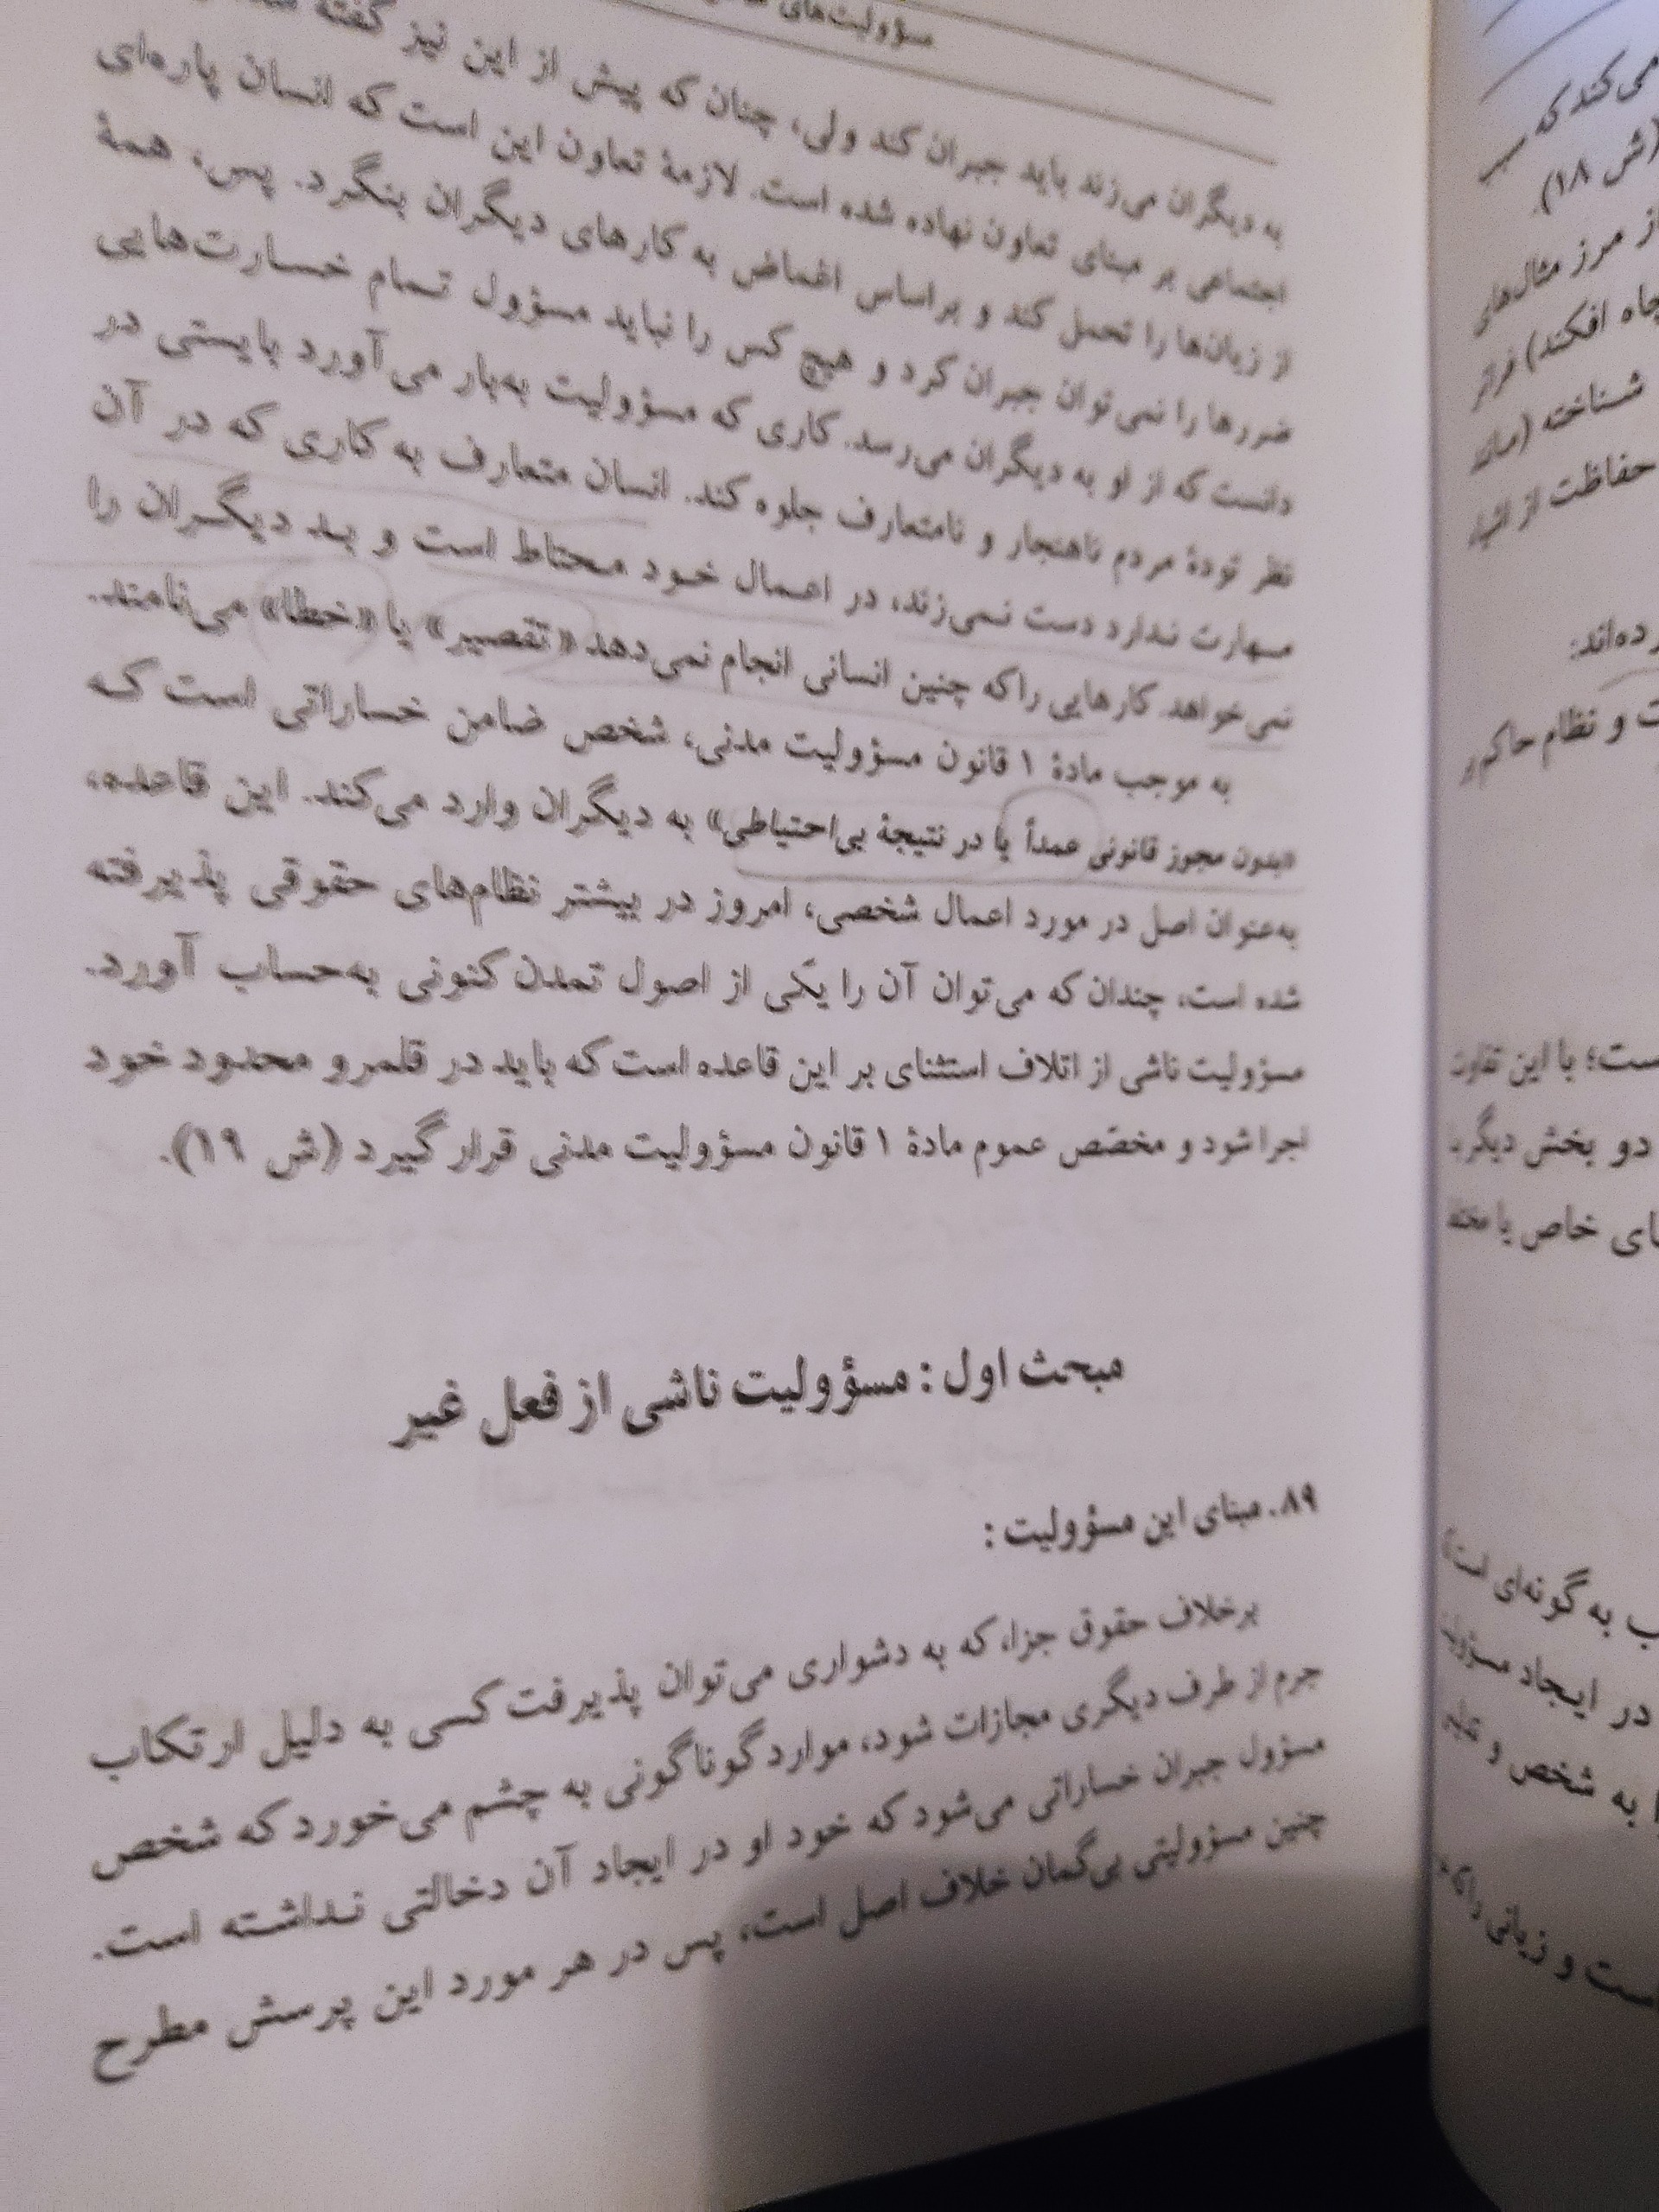 مسؤولیت‌های
به دیگران می‌زند باید جبران کند ولی، چنان که پیش از این نیز گفته
اجتماعی بر مبنای تعاون نهاده شده است. لازمهٔ تعاون این است که انسان پاره‌ای
از زیان‌ها را تحمل کند و براساس اغماض به کارهای دیگران بنگرد. پس، همهٔ
ضررها را نمی‌توان جبران کرد و هیچ کس را نباید مسؤول تمام خسارت‌هایی
دانست که از او به دیگران می‌رسد. کاری که مسؤولیت به‌بار می‌آورد بایستی در
نظر تودهٔ مردم ناهنجار و نامتعارف جلوه کند. انسان متعارف به کاری که در آن
مهارت ندارد دست نمی‌زند، در اعمال خود محتاط است و بد دیگران را
نمی‌خواهد. کارهایی را که چنین انسانی انجام نمی‌دهد «تقصیر» یا «خطا» می‌نامند.
به موجب مادهٔ ۱ قانون مسؤولیت مدنی، شخص ضامن خساراتی است که
«بدون مجوز قانونی عمداً یا در نتیجهٔ بی‌احتیاطی» به دیگران وارد می‌کند. این قاعده،
به‌عنوان اصل در مورد اعمال شخصی، امروز در بیشتر نظام‌های حقوقی پذیرفته
شده است، چندان که می‌توان آن را یکی از اصول تمدن کنونی به‌حساب آورد.
مسؤولیت ناشی از اتلاف استثنای بر این قاعده است که باید در قلمرو محدود خود
اجرا شود و مخصّص عموم مادهٔ ۱ قانون مسؤولیت مدنی قرار گیرد (ش ۱۹).
مبحث اول : مسؤولیت ناشی از فعل غیر
۸۹. مبنای این مسؤولیت :
برخلاف حقوق جزا، که به دشواری می‌توان پذیرفت کسی به دلیل ارتکاب
جرم از طرف دیگری مجازات شود، موارد گوناگونی به چشم می‌خورد که شخص
مسؤول جبران خساراتی می‌شود که خود او در ایجاد آن دخالتی نداشته است.
چنین مسؤولیتی بی‌گمان خلاف اصل است، پس در هر مورد این پرسش مطرح
می‌کند که
(ش ۱۸).
از مرز مثال‌های
چاه افکند) فراتر
شناخته (مانند
حفاظت از اشیاء
ده‌اند:
و نظام حاکم بر
ست؛ با این تفاوت
دو بخش دیگر،
های خاص یا مختلط
به گونه‌ای است
در ایجاد مسؤولیت
به شخص و
ست و زیانی را که